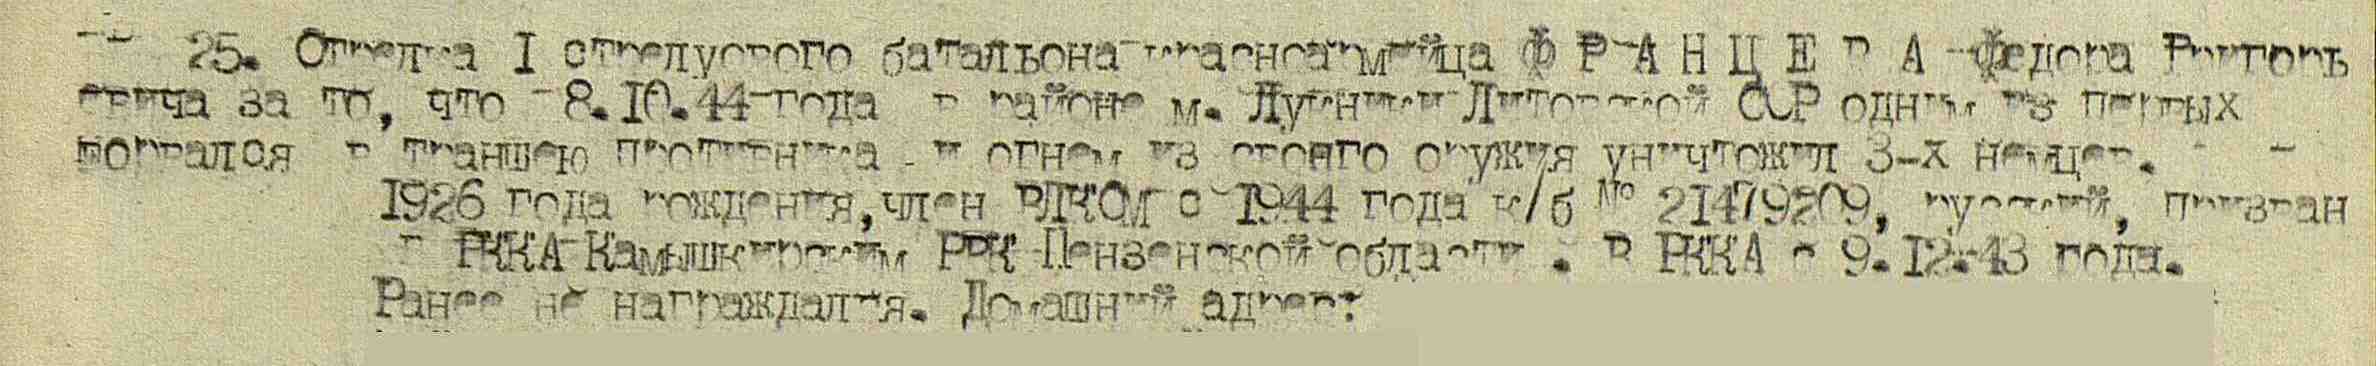 25. Стрелка I стрелкового батальона красноармейца Ф Р А Н Ц Е В А Федора Григорь
евича за то, что 8.10.44 года в районе м. Лукники Литовской ССР одним из первых
ворвался в траншею противника и огнем из своего оружия уничтожил 3-х немцев.
1926 года рождения, член ВЛКСМ с 1944 года к/б № 21479209, русский, призван
в РККА Камышкирским РВК Пензенской области. В РККА с 9.12.43 года.
Ранее не награждался. Домашний адрес: